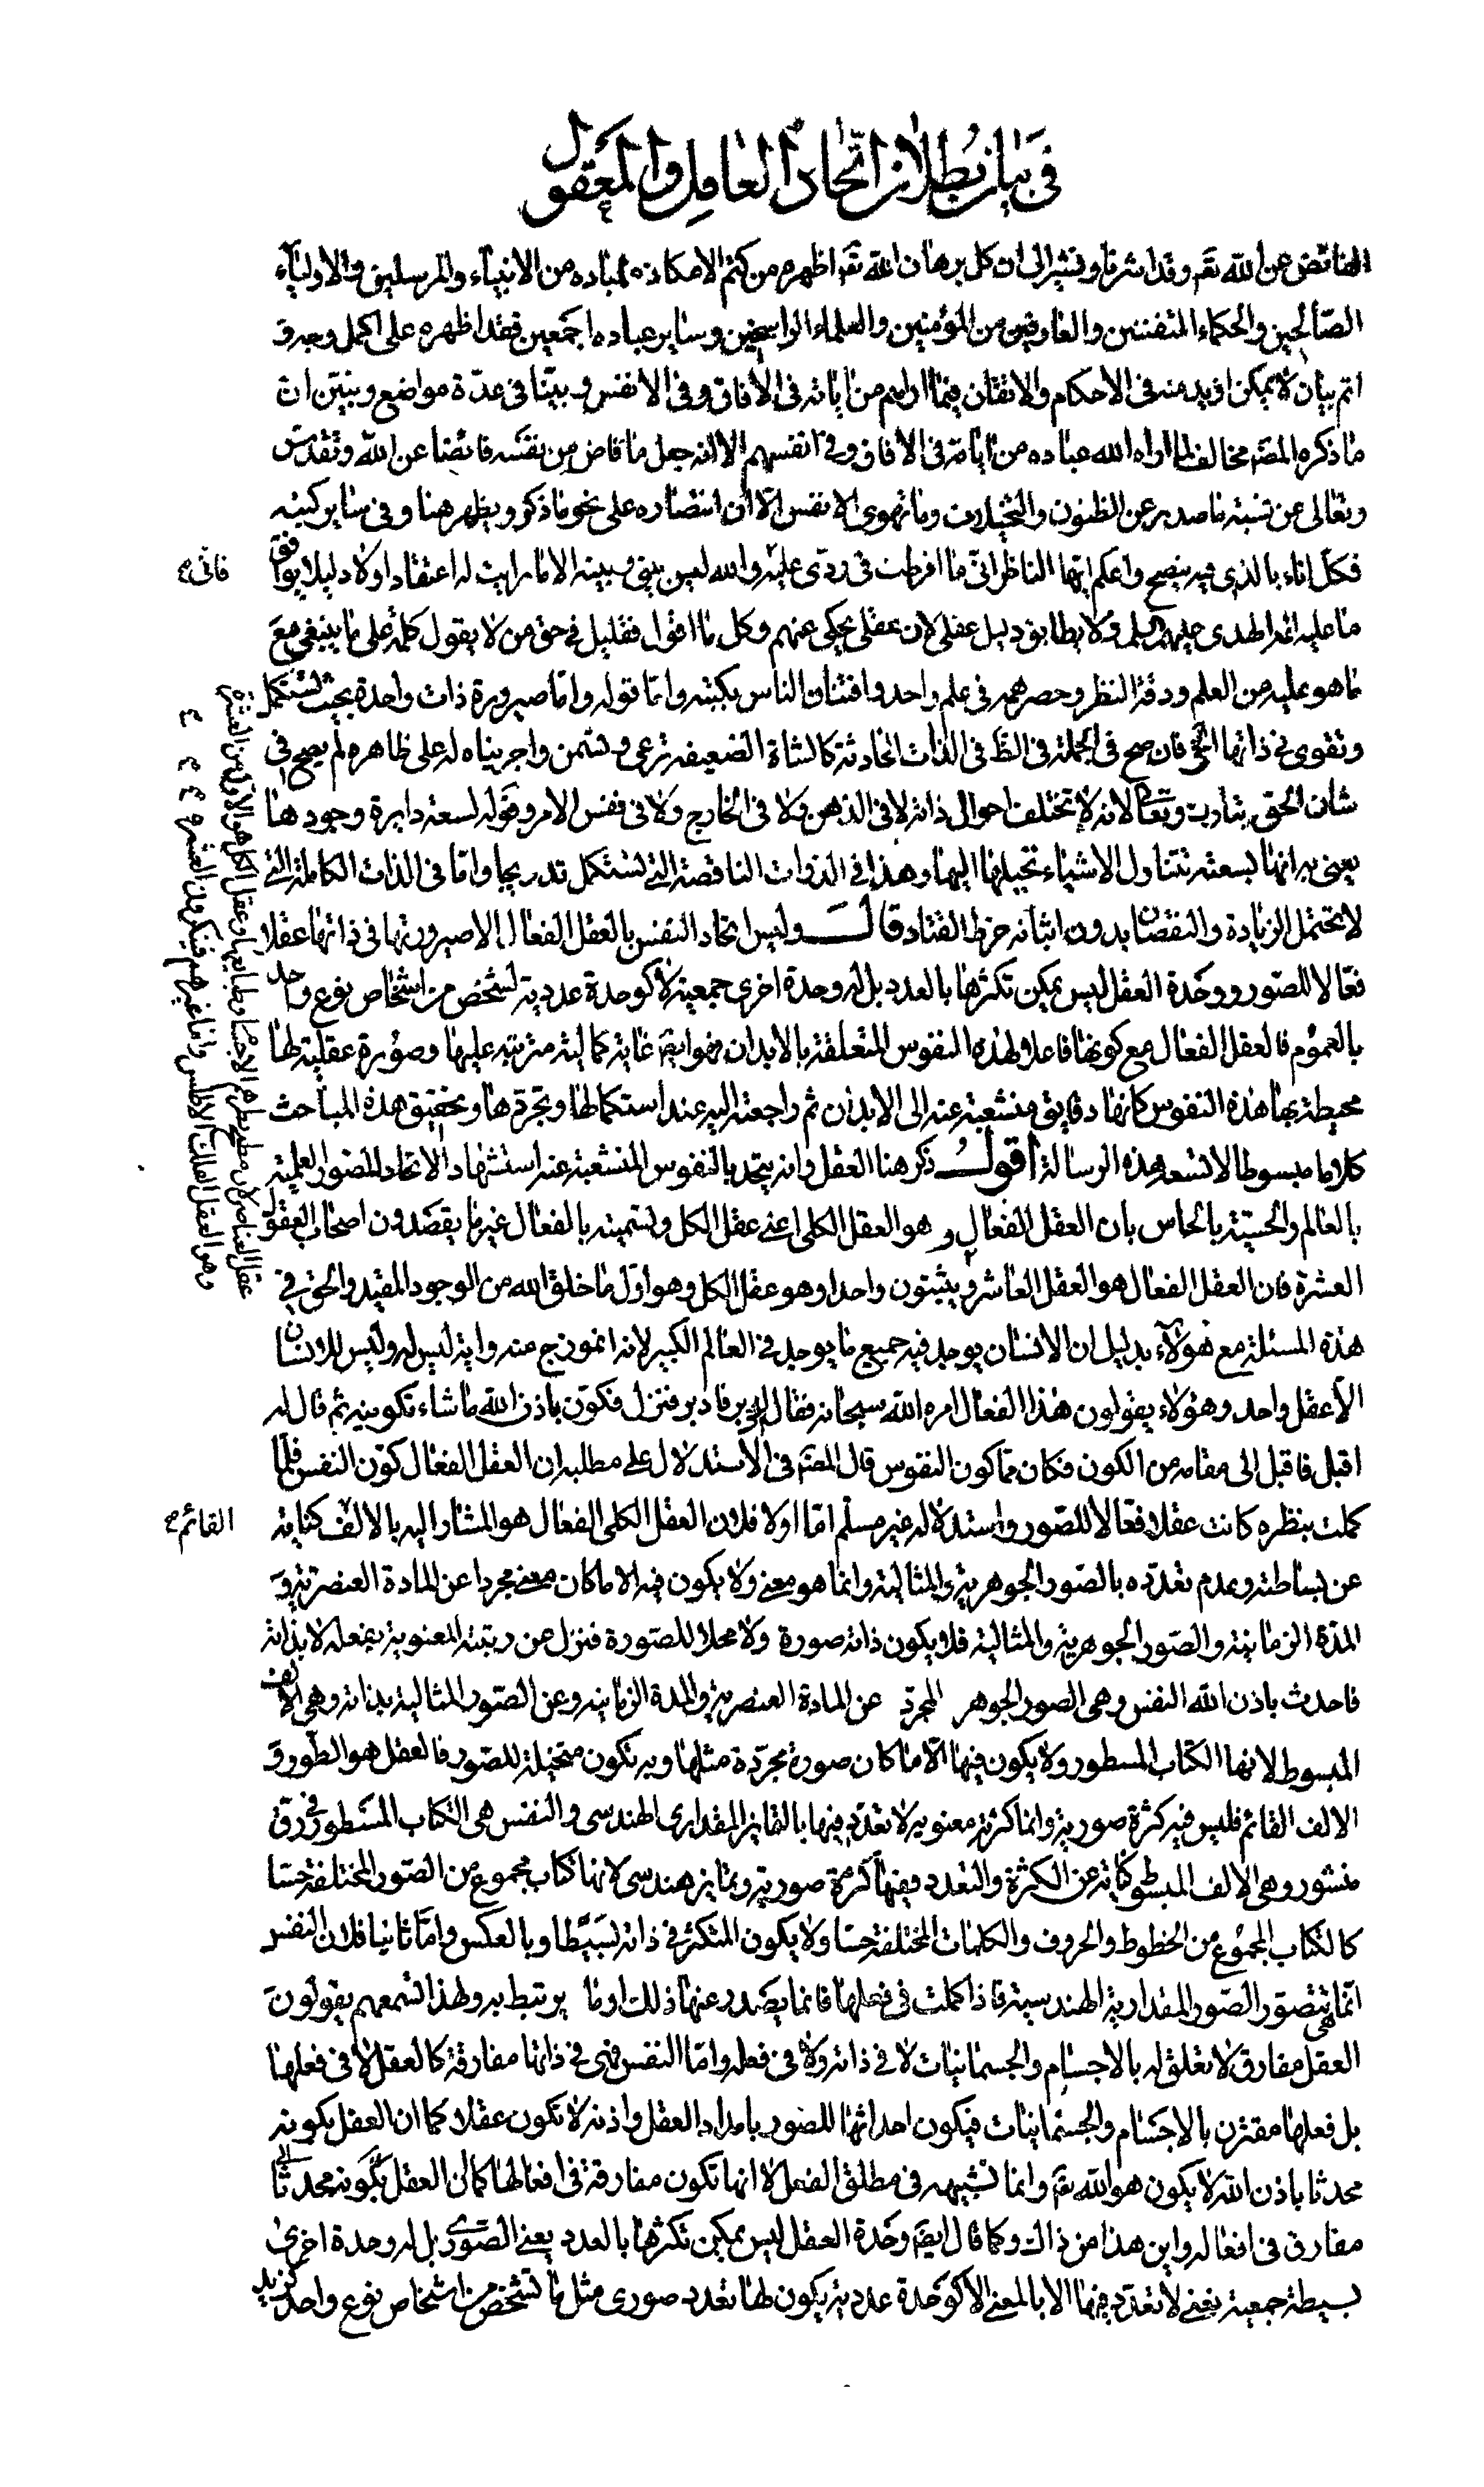 في بيان بطلان اتحاد العاقل والمعقول
الفائض عن الله تعم وقد اشرنا ونشير الى ان كل برهان الله تعم اظهره من كتم الامكان لعباده من الانبياء والمرسلين والاولياء
الصّالحين والحكماء المتفننين والعارفين من المؤمنين والعلماء الراسخين وساير عباده اجمعين فقد اظهره على اكمل وجه و
اتم بيان لا يمكن ازيد منه في الاحكام والاتقان فيما اراهم من اياته في الأفاق وفي الانفس وبيّنا في عدّة مواضع ونبيّن ان
ما ذكره المصَ مخالف لما اراه الله عباده من اياته في الافاق وفي انفسهم الا انه جعل ما فاض من نفسه فائضا عن الله وتقدس
وتعالى عن نسبة ما صدر عن الظنون والتخيلات وما تهوى الانفس الّا ان انتصاره على نحو ما ذكر ويظهر هنا وفي ساير كتبه
فكل اناء بالذي فيه ينضح واعلم ايّها الناظر انّي ما افرطت في ردّي عليه والله لعين بيني وبينه الا ما رايت له اعتقادا ولا دليلا يوافق
ما عليه ائمة الهدى عليهم السلم ولا يطابق دليل عقلي لان عقلي يحكي عنهم وكل ما اقول فقليل في حق من لا يقول كلمة على ما ينبغي مع
ما هو عليه من العلم ودقة النظر وحصر همه في علم واحد وافتتان الناس بكتبه وامّا قوله وامّا صيرورة ذات واحدة بحيث تستكمل
وتقوى في ذاتها الخ فان صح في الجملة في الظَ في الذات الحادثة كالشاة الضعيفة ترعى وتسمن واجريناه له على ظاهره لم يصح في
شان الحق تبارك وتعالى لانه لا تختلف احوال ذاته لا في الذهن ولا في الخارج ولا في نفس الامر وقوله لسعة دايرة وجودها
يعني به انها بسعته تتناول الاشياء تحيلها اليها وهذا في الذوات الناقصة التي تستكمل تدريجا وامّا في الذات الكاملة التي
لا تحتمل الزيادة والنقصان بدون اثباته خرط القتاد قالـــ وليس اتحاد النفس بالعقل الفعال الا صيرورتها في ذاتها عقلا
فعّالا للصّور ووحدة العقل ليس يمكن تكثرها بالعدد بل له وحدة اخرى جمعية لا كوحدة عددية لشخص من اشخاص نوع واحد
بالعموم فالعقل الفعال مع كونها فاعلا لهذه النفوس المتعلقة بالابدان فهو ايضَ غاية كمالية مترتبة عليها وصورة عقلية لها
محيطة بها هذه النفوس كانها دقايق منشعبة عنه الى الابدان ثم راجعة اليه عند استكمالها وتجردها وتحقيق هذه المباحث
كلاما مبسوطا لا تسعه هذه الرسالة اقولُـــ ذكر هنا العقل وانه يتحد بالنفوس المنشعبة عنه استشهادا لاتحاد الصور العلمية
بالعالم والحسية بالحاس بان العقل الفعال وهو العقل الكلي اعني عقل الكل وتسميته بالفعال غير ما يقصدون اصحاب العقول
العشرة فان العقل الفعال هو العقل العاشر ويثبتون واحدا وهو عقل الكل وهو اوّل ما خلق الله من الوجود المقيد والحق في
هذه المسئلة مع هؤلآء بدليل ان الانسان يوجد فيه جميع ما يوجد في العالم الكبير لانه انموذج منه واية ليس له وليس للانسان
الا عقل واحد وهؤلاء يقولون هذا الفعال امره الله سبحانه فقال له ادبر فادبر فتنزل فكوّن باذن الله ما شاء تكوينه ثم قال له
اقبل فاقبل الى مقامه من الكون فكان مما كون النفوس قال المصَ في الاستدلال على مطلبه ان العقل الفعال كوّن النفس فلما
كملت بنظره كانت عقلا فعّالا للصّور واستدلاله غير مسلّم امّا اولا فلان العقل الكلي الفعال هو المشار اليه بالالف كناية
عن بساطته وعدم تعدّده بالصّور الجوهرية والمثالية وانما هو معنى ولا يكون فيه الا ما كان معنى مجردا عن المادة العنصرية و
المدة الزمانية والصّور الجوهرية والمثالية فلا يكون ذاته صورة ولا محلا للصّورة فنزل عن رتبته المعنوية بفعله لا بذاته
فاحدث باذن الله النفس وهي الصور الجوهر المجرد عن المادة العنصرية والمدة الزمانية وعن الصّور المثالية بذاته وهي الالف
المبسوط لانها الكتاب المسطور ولا يكون فيها الّا ما كان صورة مجرّدة مثلها وبه تكون متخيلة للصّور فالعقل هو الطّور و
الالف القائم فليس فيه كثرة صورية وانما كثرته معنوية لا تعدّد فيها بالتمايز المقداري الهندسي والنفس هي الكتاب المسطور في رق
منشور وهي الالف المبسوط كناية عن الكثرة والتعدد ففيها كثرة صورية وتمايز هندسي لانها كتاب مجموع من الصّور المختلفة حسّا
كالكتاب المجموع من الخطوط والحروف والكلمات المختلفة حسّا ولا يكون المتكثر في ذاته بسيطا وبالعكس وامّا ثانيا فلان النفس
انّما هي تتصوّر الصّور المقدارية الهندسية فاذا كملت في فعلها فانما يصدر عنها ذلك او ما يرتبط به ولهذا تسمعهم يقولون
العقل مفارق لا تعلق له بالاجسام والجسمانيات لا في ذاته ولا في فعله وامّا النفس فهي في ذاتها مفارقة كالعقل لا في فعلها
بل فعلها مقترن بالاجسام والجسمانيات فيكون احداثها للصّور بامداد العقل واذنه لا تكون عقلا كما ان العقل بكونه
محدثا باذن الله لا يكون هو الله تعَ وانما تشبهه في مطلق الفعل لا انها تكون مفارقة في افعالها كما ان العقل بكونه محدثا
مفارق في افعاله واين هذا من ذاك وكما قال ايضَ وحدة العقل ليس يمكن تكثرها بالعدد يعني الصّوري بل له وحدة اخرى
بسيطة جمعية يعني لا تعدّد فيها الا بالمعنى لا كوحدة عددية يكون لها تعدد صوري مثل ما تشخص من اشخاص نوع واحد كزيد
فاني
عقل العناصر لان مطرح نظرهم الاجسا وطبايعها وعقل الكل هو الاوّل من العشرة
وهو العقل الفلك الاطلس وامّا غيرهم فينكرون العشرة
القائم